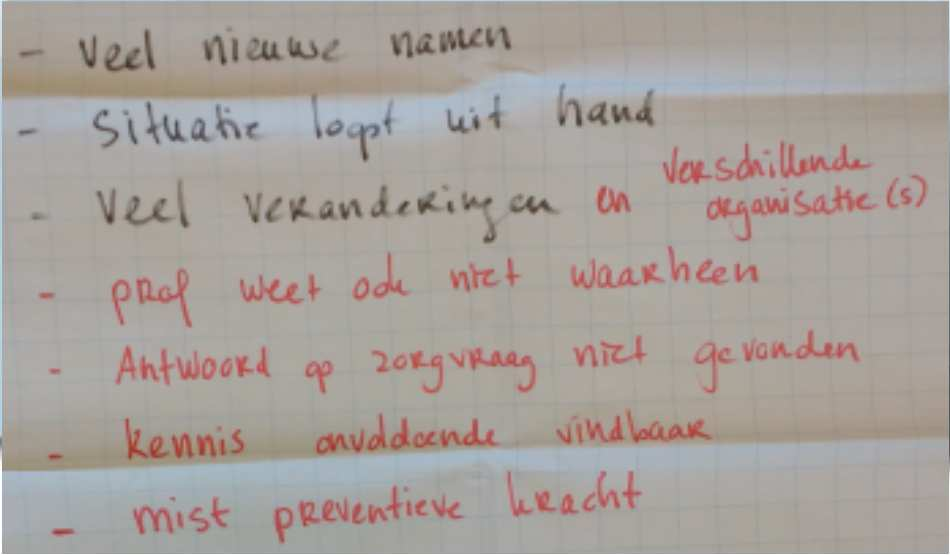 - Veel nieuwe namen
- Situatie loopt uit hand
- Veel veranderingen en verschillende organisatie(s)
- prof weet ook niet waarheen
- Antwoord op zorgvraag niet gevonden
- kennis onvoldoende vindbaar
- mist preventieve kracht